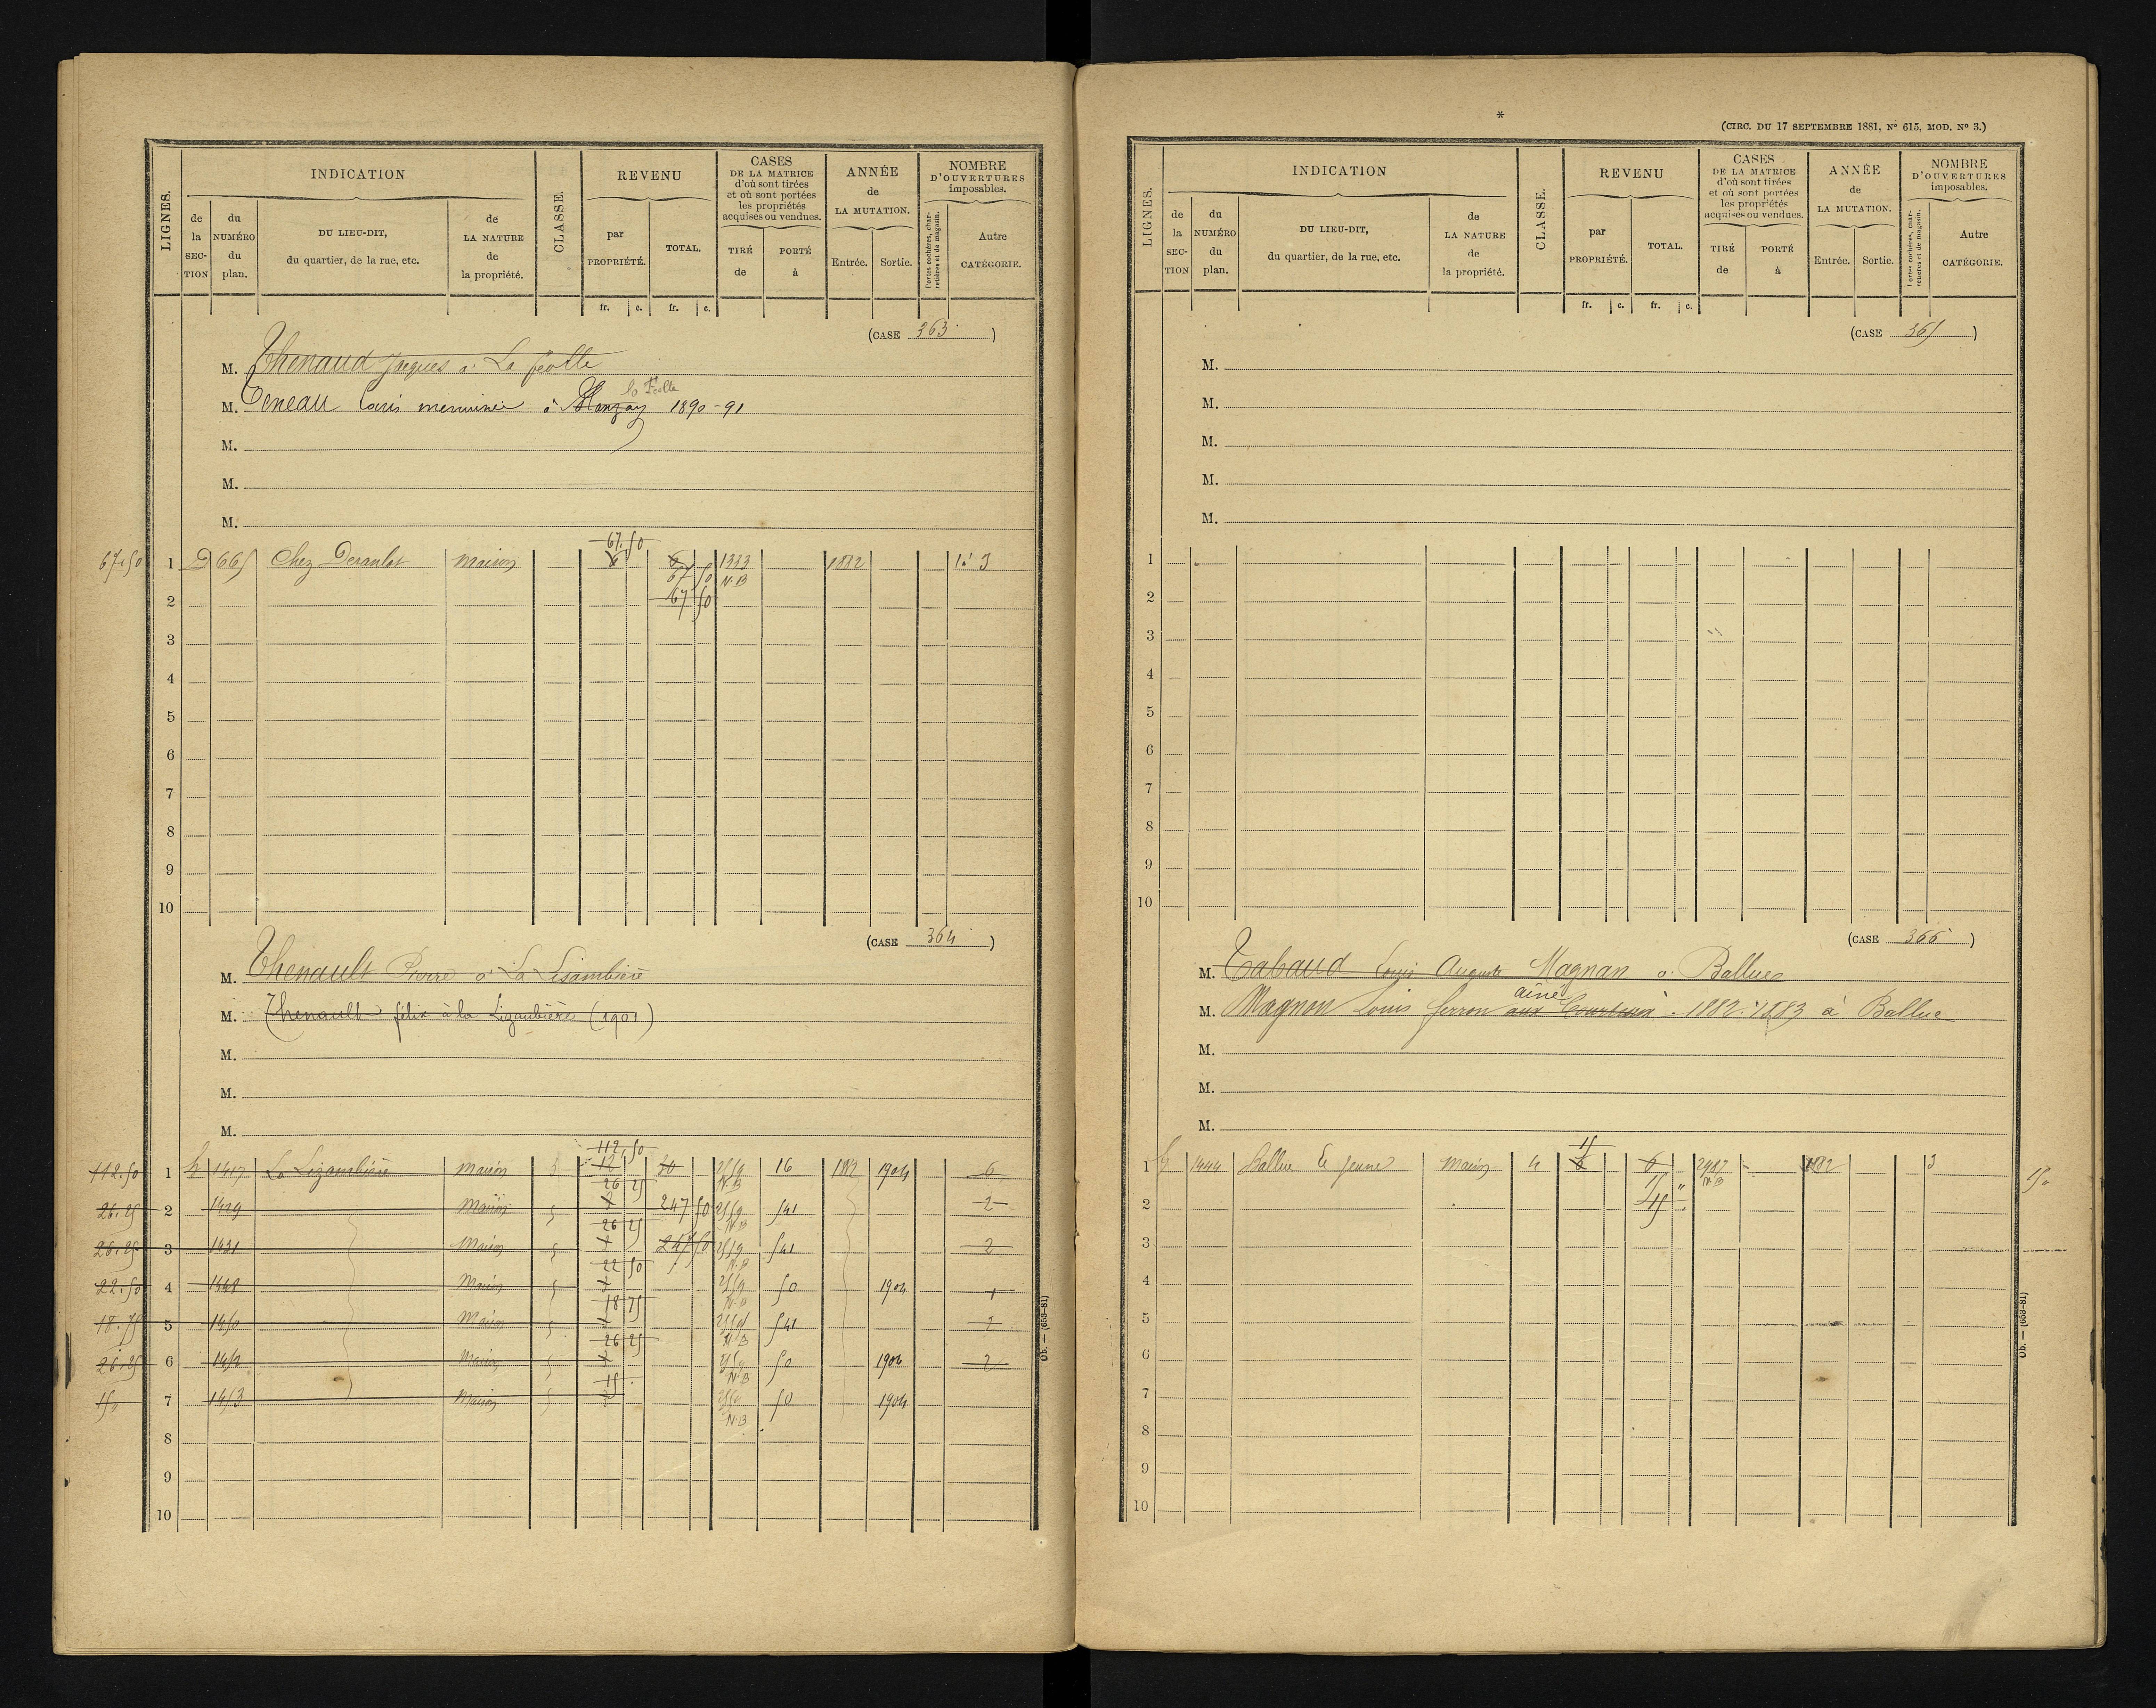 LIGNES.
INDICATION
de la SECTION
du NUMÉRO du plan.
DU LIEU-DIT, du quartier, de la rue, etc.
de LA NATURE de la propriété.
CLASSE.
REVENU
par PROPRIÉTÉ.
TOTAL.
CASES DE LA MATRICE d'où sont tirées et où sont portées les propriétés acquises ou vendues.
TIRÉ de
PORTÉ à
ANNÉE de LA MUTATION.
Entrée.
Sortie.
NOMBRE D'OUVERTURES imposables.
Portes cochères, charretières et de magasin.
Autre CATÉGORIE.
fr. c. fr. c.
(CASE 363)
M. Thenaud Jacques à La féolle
la Féolle
M. Teneau Louis menuisier à Manzay 1890-91
M.
M.
M.
67.50
67.50 1 D 665 Chez Deraulet Maison 6 6 1383 1882 3
67 50 N.B
2 67 50
3
4
5
6
7
8
9
10
(CASE 364)
M. Thenault Pierre à La Lisambière
M. Thenault félix à la Ligaubière (1901)
M.
M.
M.
112.50
112.50 1 1417 La Lizambière Maison 3 12 30 2559 16 1882 1904 6
26 25 N.B
26.25 2 1429 Maison 5 247 50 2559 541 2
26 25 N.B
26.25 3 1431 Maison 5 247 50 2559 541 2
22 50 N.B
22.50 4 1448 Maison 5 2559 50 1904 1
18 75 N.B
18.75 5 1450 Maison 5 2559 541 2
26 25 N.B
26.25 6 1452 Maison 5 2559 50 1904 2
15 N.B
15 7 1453 Maison 5 2559 50 1904
N.B
8
9
10
Ob. — (653-81)
*
(CIRC. DU 17 SEPTEMBRE 1881, No 615, MOD. No 3.)
LIGNES.
INDICATION
de la SECTION
du NUMÉRO du plan.
DU LIEU-DIT, du quartier, de la rue, etc.
de LA NATURE de la propriété.
CLASSE.
REVENU
par PROPRIÉTÉ.
TOTAL.
CASES DE LA MATRICE d'où sont tirées et où sont portées les propriétés acquises ou vendues.
TIRÉ de
PORTÉ à
ANNÉE de LA MUTATION.
Entrée.
Sortie.
NOMBRE D'OUVERTURES imposables.
Portes cochères, charretières et de magasin.
Autre CATÉGORIE.
fr. c. fr. c.
(CASE 365)
M.
M.
M.
M.
M.
1
2
3
4
5
6
7
8
9
10
(CASE 366)
M. Tabaud Louis Auguste Magnan à Ballue
aîné
M. Magnon Louis ferron aux 1882.1883 à Ballue
M.
M.
M.
15
1 1444 Ballue le Jeune Maison 4 6 6 2987 1882 3
15 N.B 15
2 45
3
4
5
6
7
8
9
10
Ob. — (653-81)